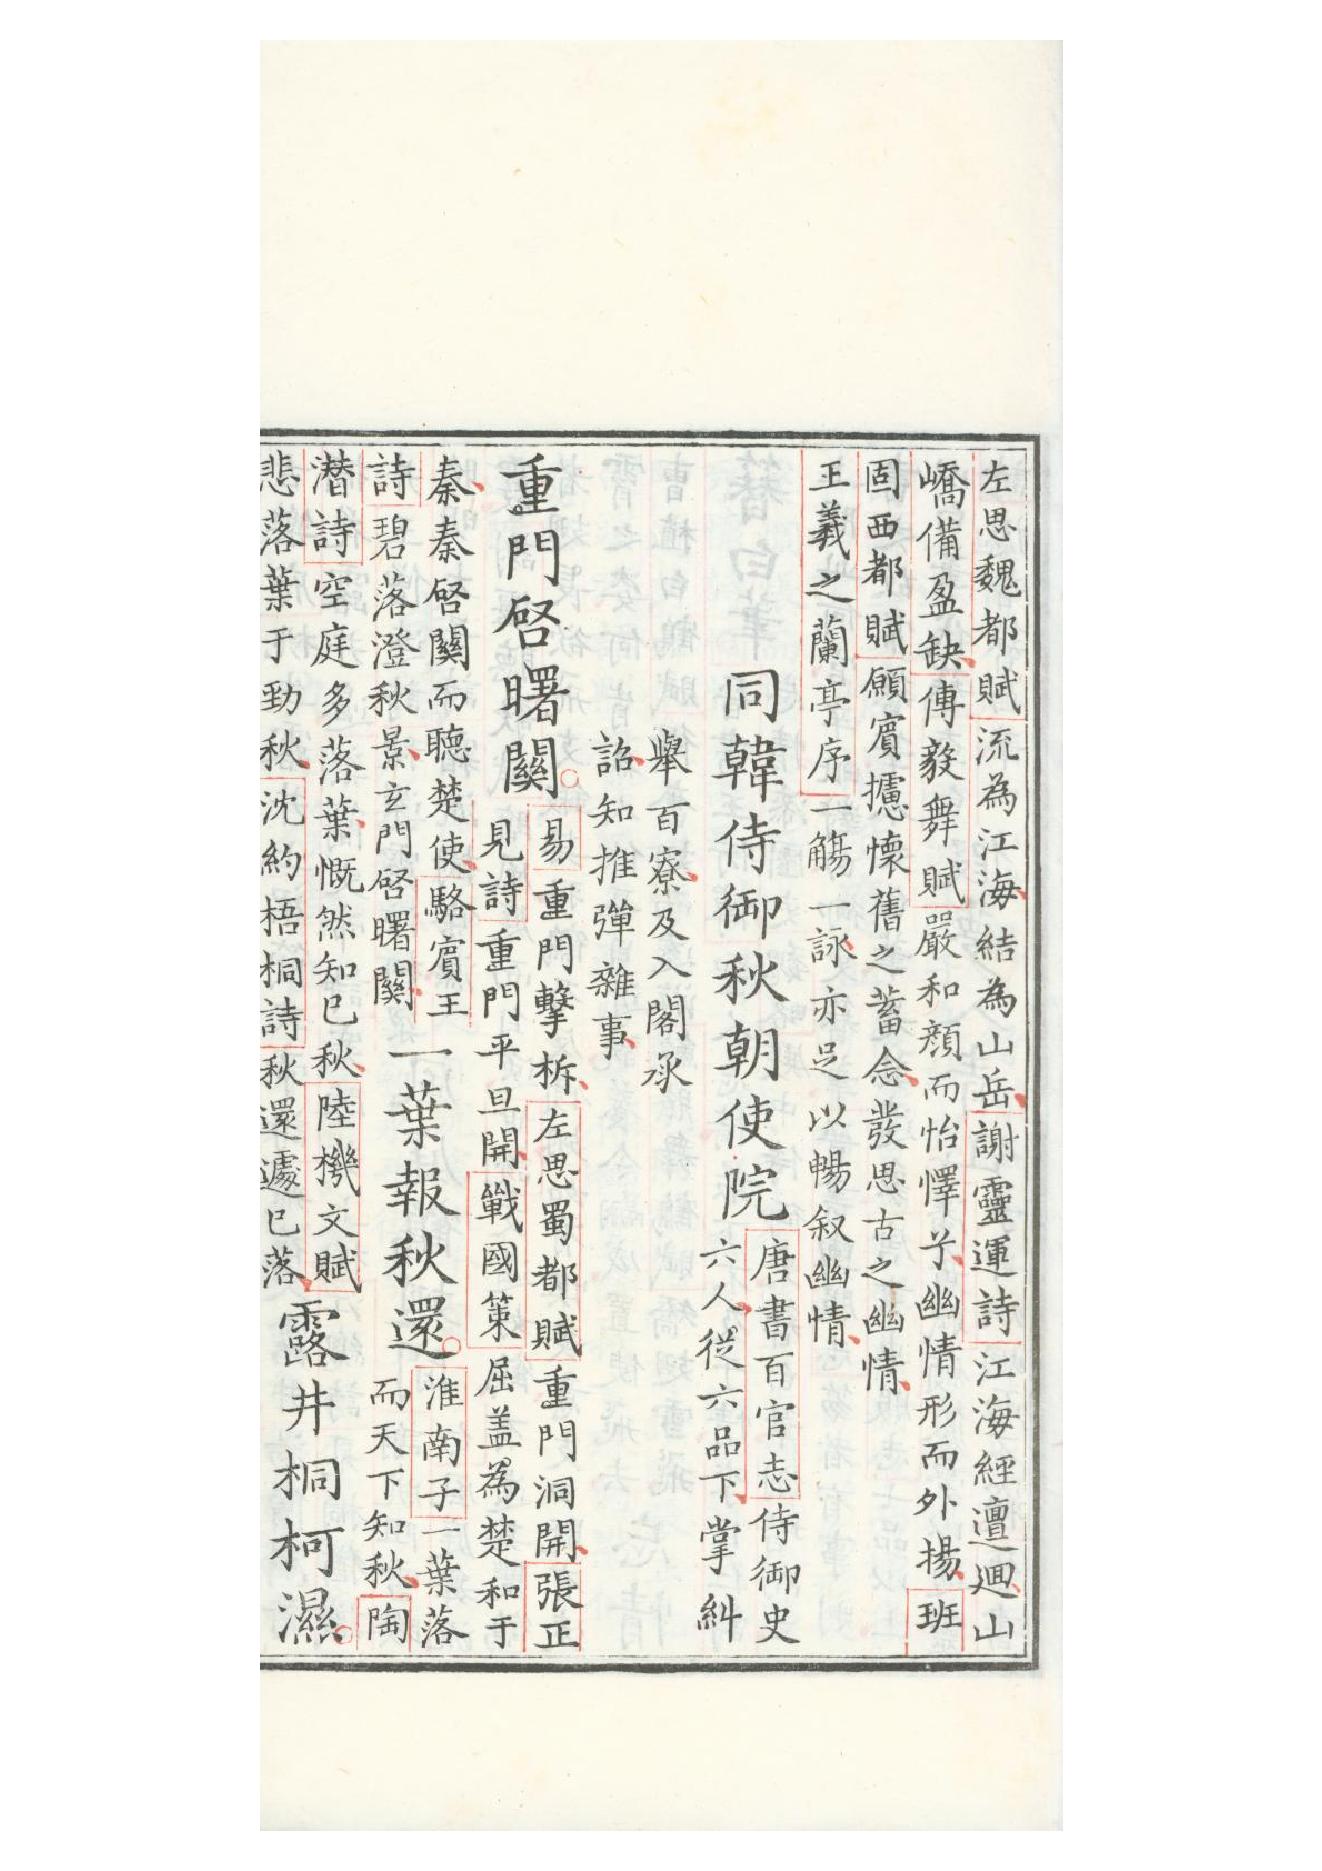 左思魏都賦流為江海結為山岳謝靈運詩江海經邅迴山
嶠備盈缺傅毅舞賦嚴和顏而怡懌兮幽情形而外揚班
固西都賦願賓攄懷舊之蓄念發思古之幽情
王羲之蘭亭序一觴一詠亦足以暢叙幽情
同韓侍御秋朝使院
唐書百官志侍御史
六人從六品下掌糾
舉百寮及入閣承
詔知推彈雜事
重門啓曙關
易重門擊柝左思蜀都賦重門洞開張正
見詩重門平旦開戰國策屈盖為楚和于
秦秦啓關而聽楚使駱賓王
詩碧落澄秋景玄門啓曙關
一葉報秋還
淮南子一葉落
而天下知秋陶
潛詩空庭多落葉慨然知已秋陸機文賦
悲落葉于勁秋沈約梧桐詩秋還遽已落
露井桐柯濕